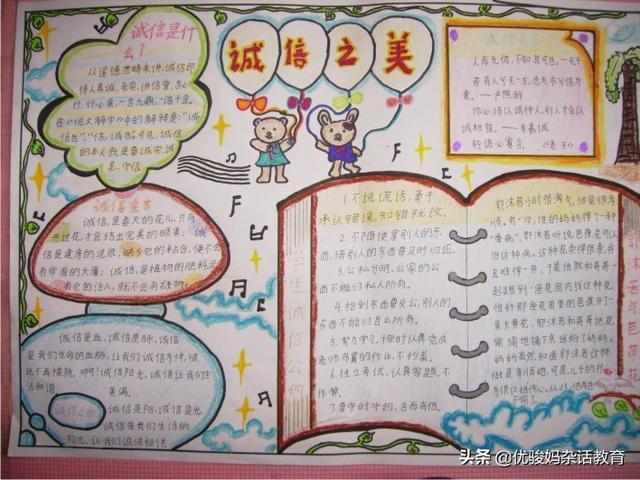 诚信之美
诚信是什
么？
从道德范畴来讲，诚信即
待人真诚、老实、讲信誉、言必
行、行必果、一言九鼎、一诺千金。
在《说文解字》中的解释是："诚
信也"，"信，诚也"。可见，诚信
的本义就是要诚实、诚
恳、守信
诚信名言
人而无信，不知其可也。—孔子
若有人兮天一方，忠为衣兮信为
裳。—卢照邻
你必须以诚待人，别人才会以
诚相报。—李嘉诚
轻诺必寡言
《老子》
诚信宣言
诚信，是春天的花儿，只有
开过花，才会结出完美的硕果；诚信
是建房的泥浆，缺少它的粘合，便不会
有牢固的大厦；诚信，是植物的肥料，
有它的注入，就不会有绿物。
诚信是血，诚信是脉，诚信
是我们生命的血脉，让我们诚信为伴，彼
此不再提防。啊！诚信阳光，诚信让我们生
活和谐
美满。
诚信之歌
诚信是阳，诚信是光，
诚信是我们生活的
阳光，让我们诚信相伴
学生诚信公约
1.不说谎话，勇于
承认错误，知错就改。
2.不随便拿别人的东
西，借别人的东西要及时归还。
3.公私分明，公家的公
西不能归私人所有。
4.拾到东西要交公，别人的
东西不能归自己所有。
5.努力学习，按时认真完成
老师布置的作业，不抄袭。
6.独立考试，认真答题，不
作弊。
7.遵守时守约，言而有信。
郭沫若与芭蕉花
郭沫若小时很淘气，但是很孝
顺。有一次，他的妈妈得了一种
"晕病"，郭沫若听说芭蕉花可以
治这种病。这种花卖得很贵，而
且难得一开，于是他就和哥哥一
起
头条 @优骏妈杂话教育